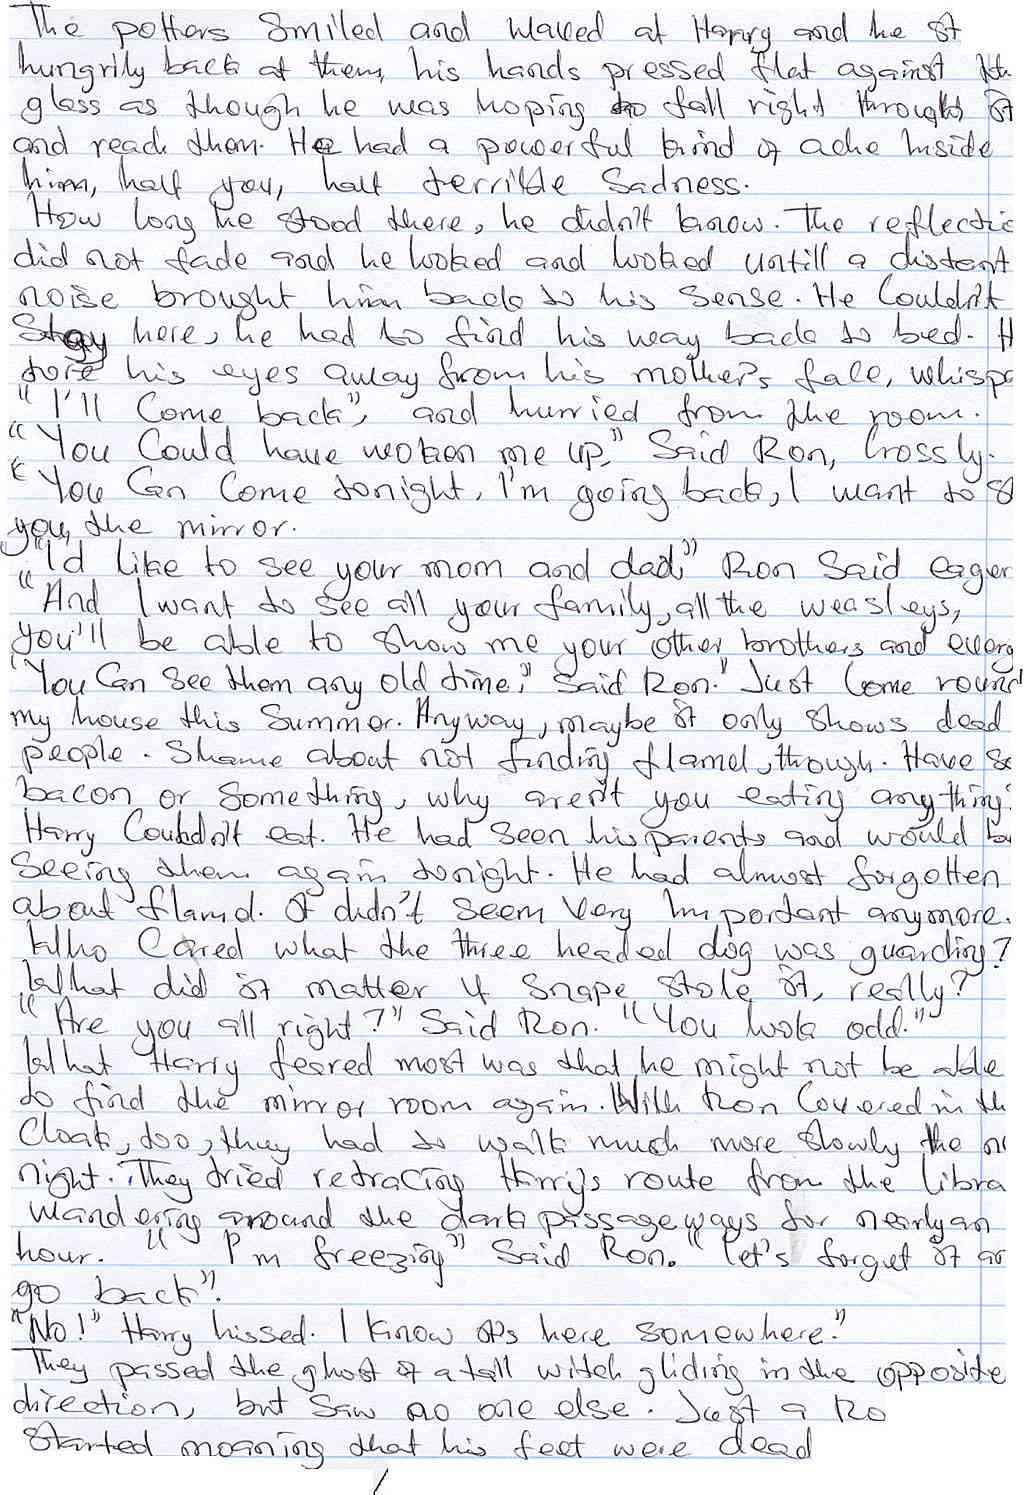 The potters Smiled and waved at Harry and he st
hungrily back at them, his hands pressed flat against th
glass as though he was hoping to fall right through it
and reach them. He had a powerful kind of ache inside
him, half you, half terrible Sadness.
How long he stood there, he didn't know. The reflectio
did not fade and he looked and looked untill a distant
noise brought him back to his Sense. He Couldn't
Stay here, he had to find his way back to bed. H
tore his eyes away from his mother's face, whispe
"I'll Come back", and hurried from the room.
"You Could have woken me up," Said Ron, Crossly.
"You Can Come tonight, I'm going back, I want to s
you, the mirror.
"I'd like to see your mom and dad," Ron Said eager
"And I want to see all your family, all the weasleys,
you'll be able to show me your other brothers and every
"You Can See them any old time," Said Ron. "Just Come round
my house this Summer. Anyway, maybe it only shows dead
people. Shame about not finding flamel, though. Have so
bacon or Something, why aren't you eating anything?
Harry Couldn't eat. He had Seen his parents and would be
Seeing them again tonight. He had almost forgotten
about flamel. It didn't seem Very Important anymore.
Who Cared what the three headed dog was guarding?
What did it matter if Snape Stole it, really?
"Are you all right?" Said Ron. "You look odd."
What Harry feared most was that he might not be able
to find the mirror room again. With Ron Covered in th
Cloak, too, they had to walk much more slowly the ne
night. They tried retracing Harry's route from the libra
wandering around the dark passageways for nearly an
hour. " I'm freezing" Said Ron. "let's forget it an
go back".
"No!" Harry hissed. I know it's here somewhere."
They passed the ghost of a tall witch gliding in the opposite
direction, but Saw no one else. Just a Ro
Started moaning that his feet were dead